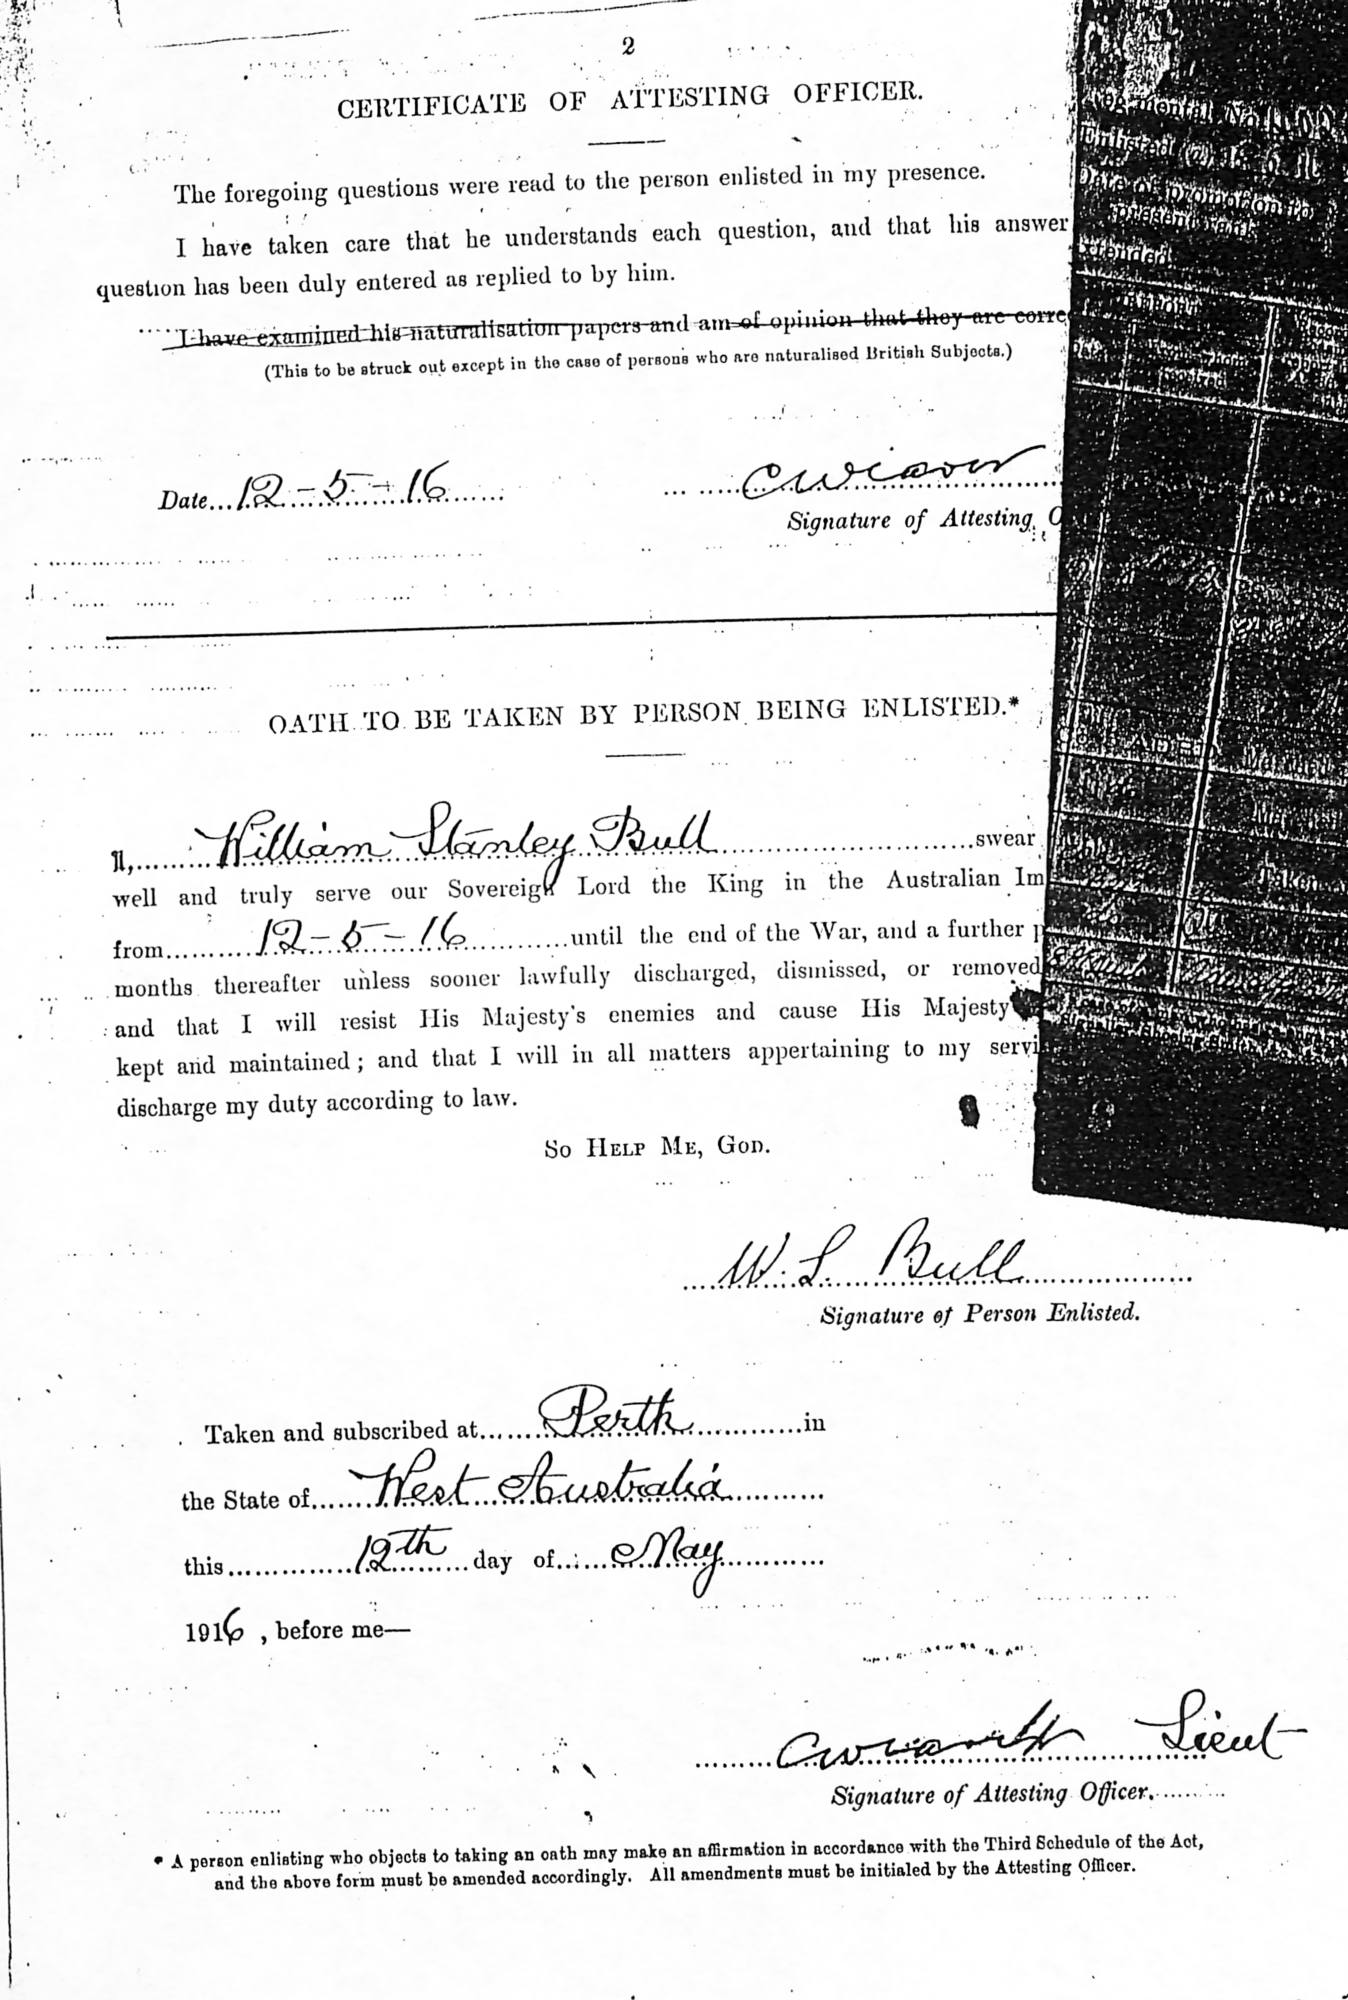 2
CERTIFICATE OF ATTESTING OFFICER.
The foregoing questions were read to the person enlisted in my presence.
I have taken care that he understands each question, and that his answer
question has been duly entered as replied to by him.
I have examined his naturalisation papers and am of opinion that they are corre
(This to be struck out except in the case of persons who are naturalised British Subjects.)
Date 12-5-16
Signature of Attesting O
OATH TO BE TAKEN BY PERSON BEING ENLISTED.*
I, William Stanley Bull swear
well and truly serve our Sovereign Lord the King in the Australian Im
from 12-5-16 until the end of the War, and a further p
months thereafter unless sooner lawfully discharged, dismissed, or removed
and that I will resist His Majesty's enemies and cause His Majesty
kept and maintained; and that I will in all matters appertaining to my servi
discharge my duty according to law.
So Help Me, God.
W. S. Bull
Signature of Person Enlisted.
Taken and subscribed at Perth in
the State of West Australia
this 12th day of May
1916, before me—
Lieut
Signature of Attesting Officer.
* A person enlisting who objects to taking an oath may make an affirmation in accordance with the Third Schedule of the Act,
and the above form must be amended accordingly. All amendments must be initialed by the Attesting Officer.
Date of promotion to
present rank